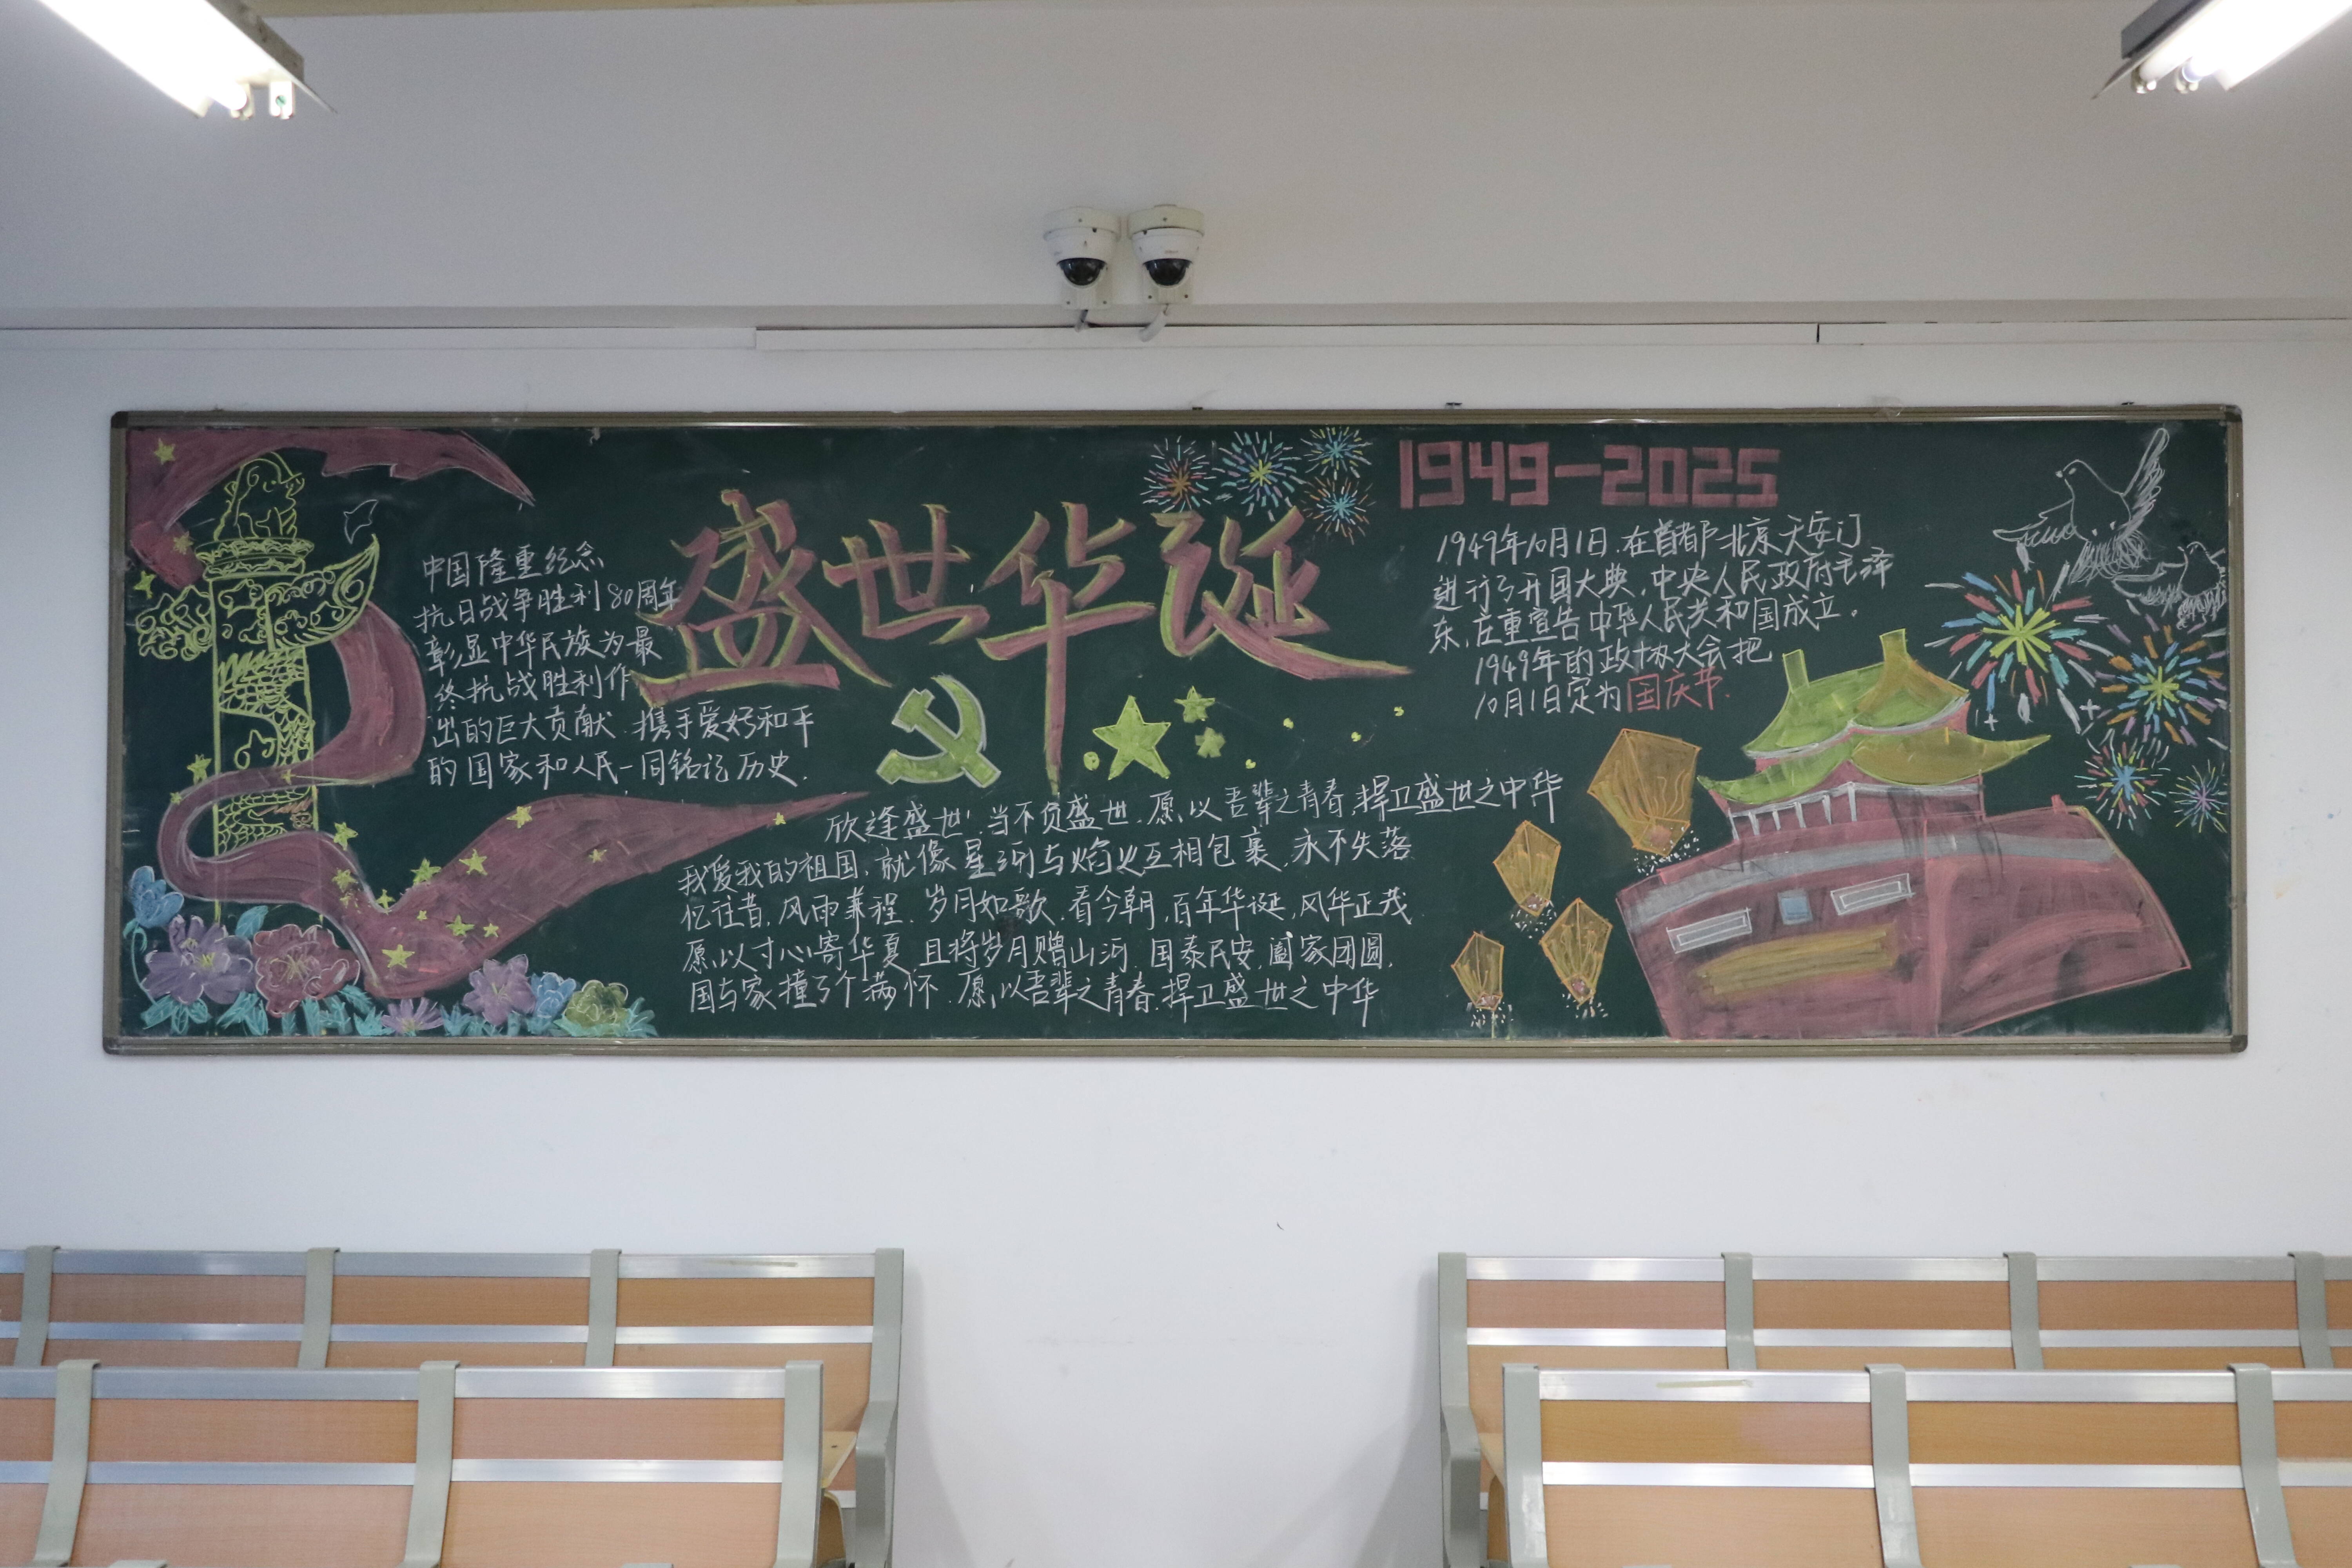 盛世华诞
中国隆重纪念
抗日战争胜利80周年
彰显中华民族为最
终抗战胜利作
出的巨大贡献.携手爱好和平
的国家和人民一同铭记历史.
1949—2025
1949年10月1日.在首都北京天安门
进行了开国大典,中央人民政府毛泽
东,庄重宣告中华人民共和国成立。
1949年的政协大会把
10月1日定为国庆节.
欣逢盛世,当不负盛世.愿以吾辈之青春,捍卫盛世之中华
我爱我的祖国,就像星河与焰火互相包裹,永不失落
忆往昔,风雨兼程.岁月如歌.看今朝,百年华诞,风华正茂
愿以寸心寄华夏,且将岁月赠山河.国泰民安,阖家团圆.
国与家撞了个满怀.愿以吾辈之青春.捍卫盛世之中华